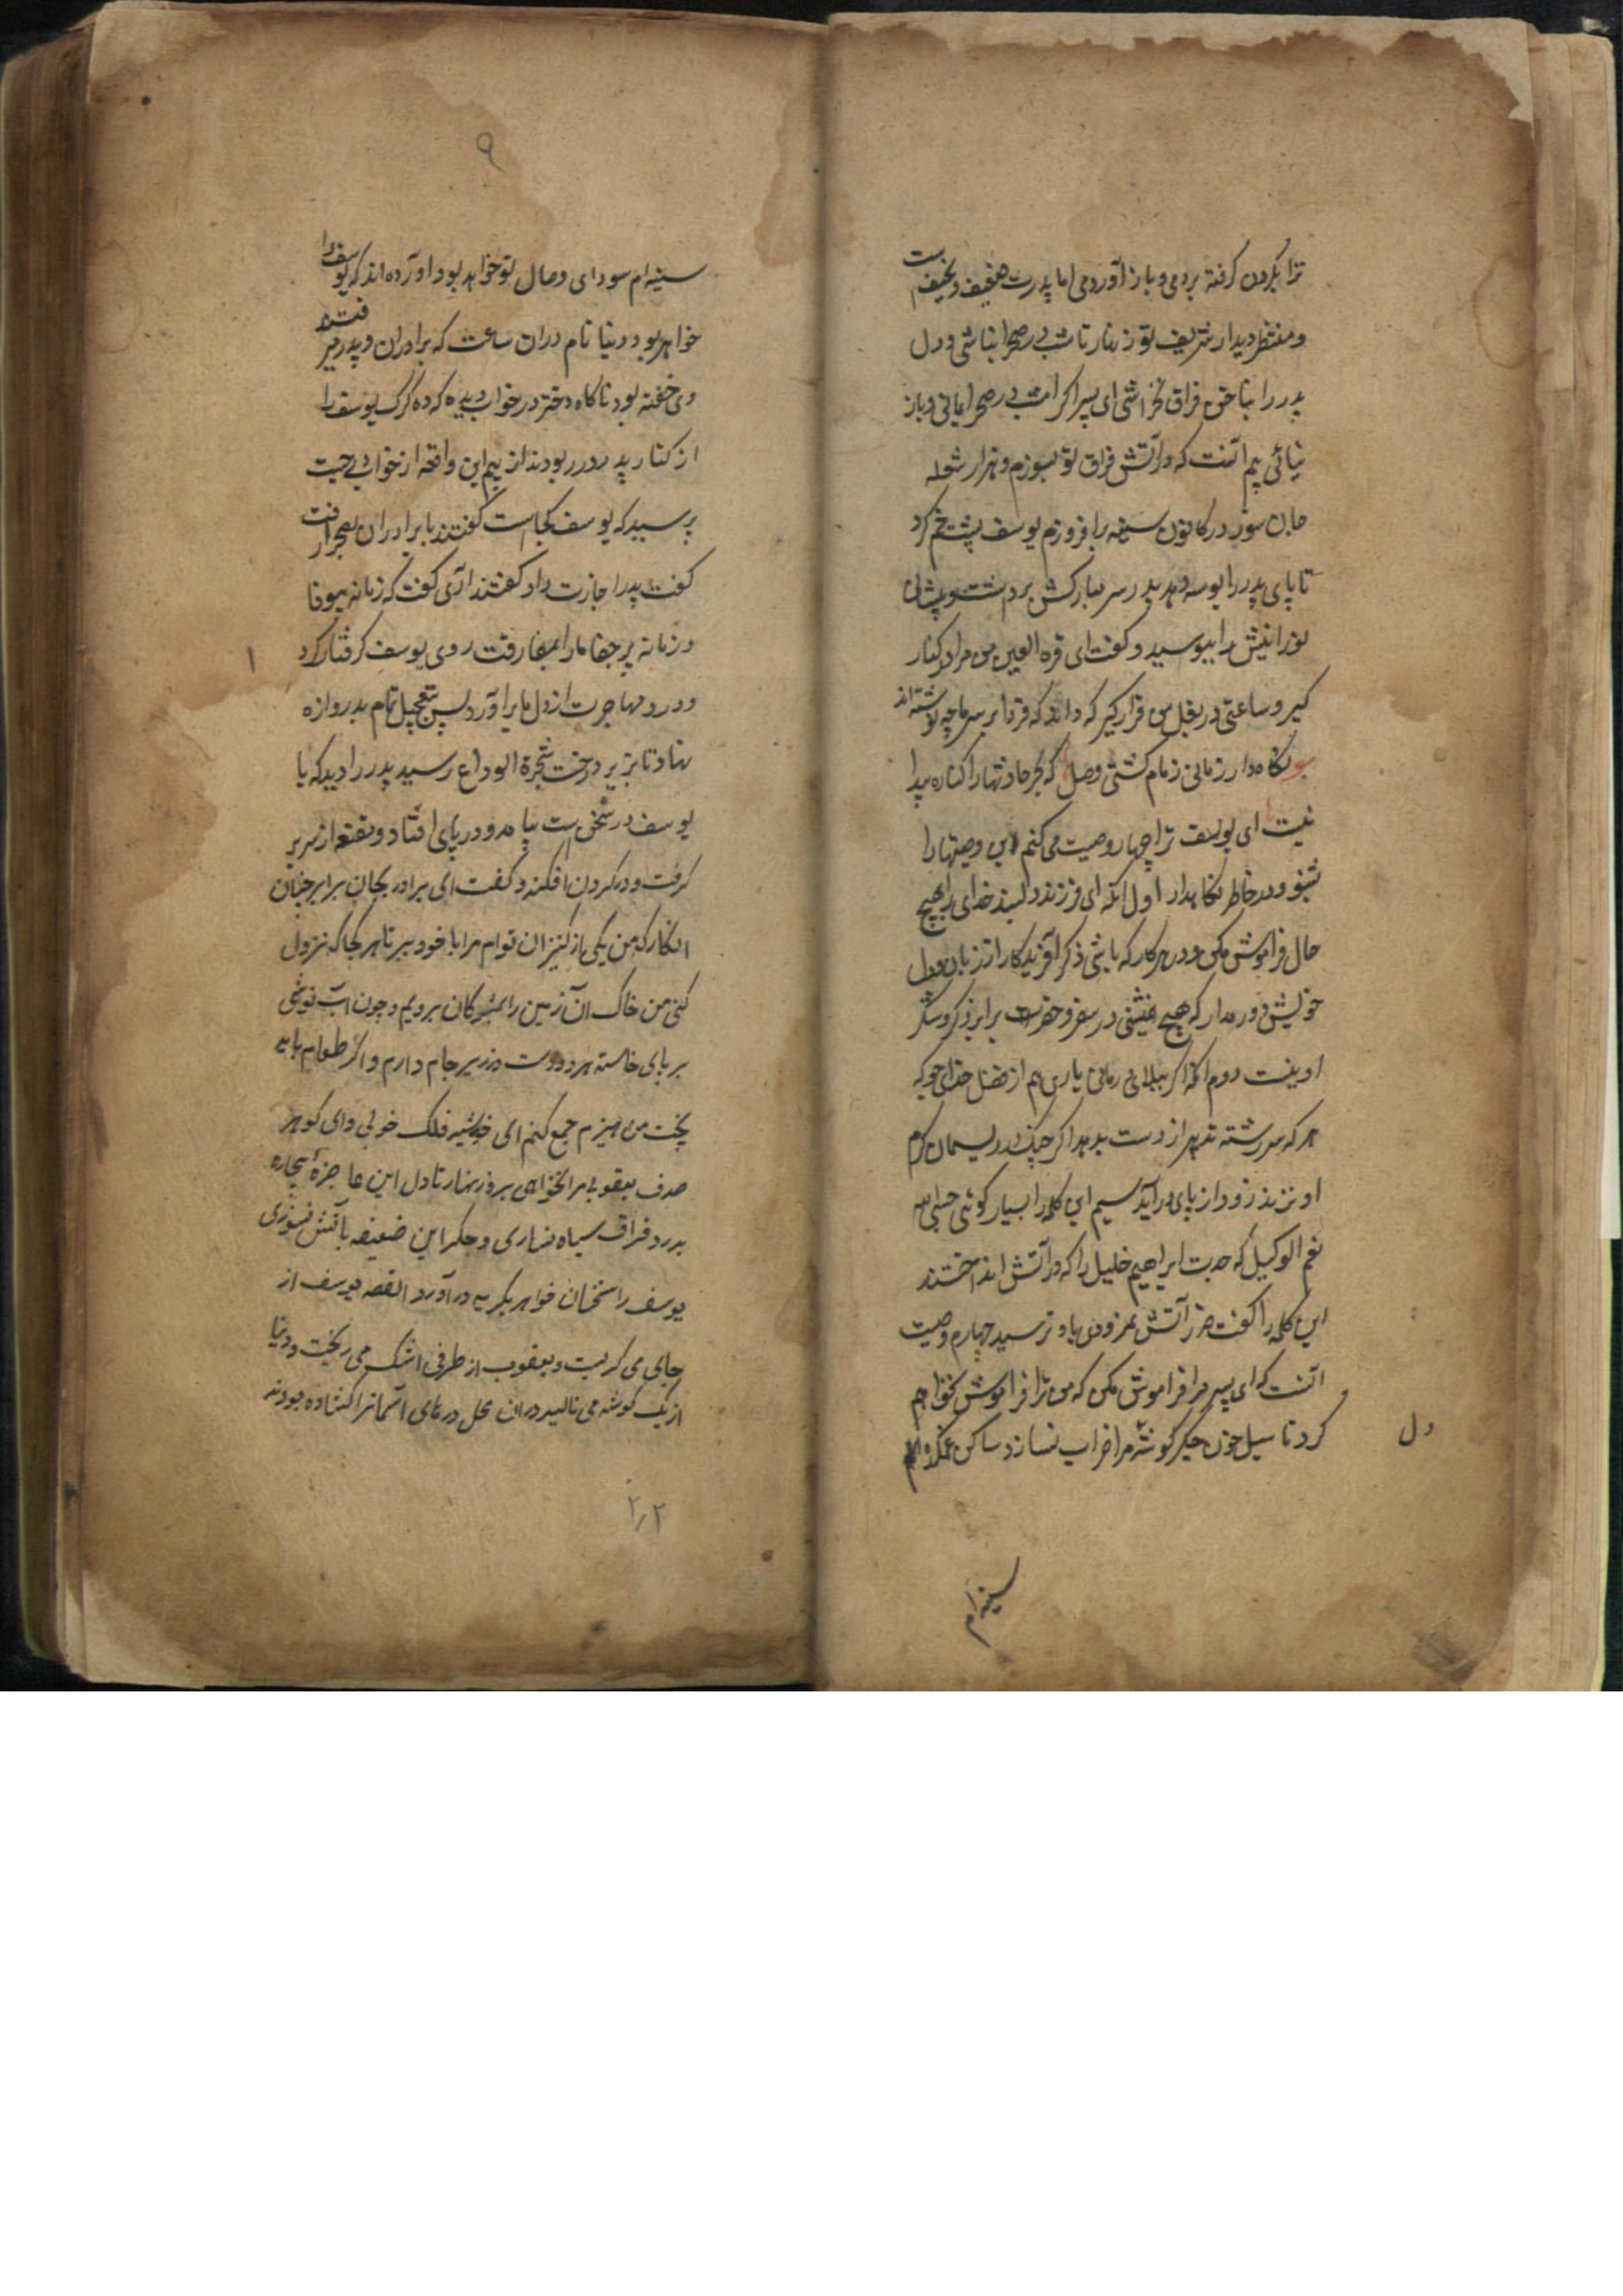 ترا بگردن گرفته بردمی و باز آوردمی اما پدرت ضعیف و نحیف است
و منتظر دیدار شریف تو زنهار تا شب در صحرا نباشی و دل
پدر را بناخن فراق نخراشی ای پسر اگر امشب در صحرا بمانی و باز
نیائی بیم آنست که در آتش فراق تو بسوزم و هزار شعله
جان سوز در کانون سینه برافروزم یوسف پشت خم کرد
تا پای پدر را بوسه دهد پدر سر مبارکش برداشت و پیشانی
نورانیش را ببوسید و گفت ای قرة العین من مرا در کنار
گیر و ساعتی در بغل من قرار گیر که داند که فردا بر سر ما چه نوشته اند
نگاه دار زمانی زمام کشتی وصل که بحر حادثها را کناره پیدا
نیست ای یوسف ترا چهار وصیت می کنم این وصیتها را
بشنو و در خاطر نگاهدار اول آنکه ای فرزند دلبند خدای را بهیچ
حال فراموش مکن و در هر کار که باشی ذکر آفریدگار از زبان و دل
خویش دور مدار که هیچ عیشی در سفر و حضر برابر ذکر و شکر
او نیست دوم آنکه اگر ببلائی رمانی یاری هم از فضل خدای جوی که
هر که سررشته تدبیر از دست بدهد اگر چنگ در ریسمان کرم
او نزند زود از پای درآید سیم این کلمه را بسیار گوئی حسبی الله
نعم الوکیل که جدت ابراهیم خلیل را که در آتش انداختند
این کلمه را گفت ضرر آتش نمرودی باو نرسید چهارم وصیت
آنست که ای پسر مرا فراموش مکن که من ترا فراموش نخواهم
کرد تا سیل خون جگر گوشه مرا خراب نسازد ساکن غمکده
دل
سینه ام
۹
سینه ام سودای وصال تو خواهد بود و آورده اند که یوسف را
خواهر بود دنیا نام دران ساعت که برادران و پدر میرفتند
وی خفته بود ناکاه دختر در خواب دید که ده گرک یوسف را
از کنار پدر در ربودند از بیم این واقعه از خواب برجست
پرسید که یوسف کجاست گفتند با برادران بصحرا رفت
گفت پدر اجازت داد گفتند آری گفت که زمانه بیوفا
و زمانه پرجفا ما را بمفارقت روی یوسف گرفتار کرد
۱
و درد مهاجرت از دل ما برآورد پس بتعجیل تمام بدروازه
نهاد تا بزیر درخت شجرة الوداع رسید پدر را دید که با
یوسف در سخن است بیامد و در پای افتاد و مقنعه از سر بر
گرفت و در گردن افکند و گفت ای برادر بجان برابر چنان
انگار که من یکی از کنیزان توام مرا با خود ببر تا هر کجا که نزول
کنی من خاک آن زمین را بمژگان برویم و چون آب نوشی
بر پای خاسته هر دو دست در زیر جام دارم و اگر طعام باید
پخت من هیزم جمع کنم ای خورشید فلک خوبی و ای گوهر
صدف یعقوبی مرو زنهار تا دل این عاجزهٔ بیچاره
بدرد فراق سیاه نسازی و جگر این ضعیفه بآتش نسوزی
یوسف را سخنان خواهر بگریه درآورد القصه یوسف از
جای می گریست و یعقوب از طرفی اشک می ریخت و دنیا
از یک گوشه می نالید دران محل درهای آسمانرا گشاده بودند
۲٫۲